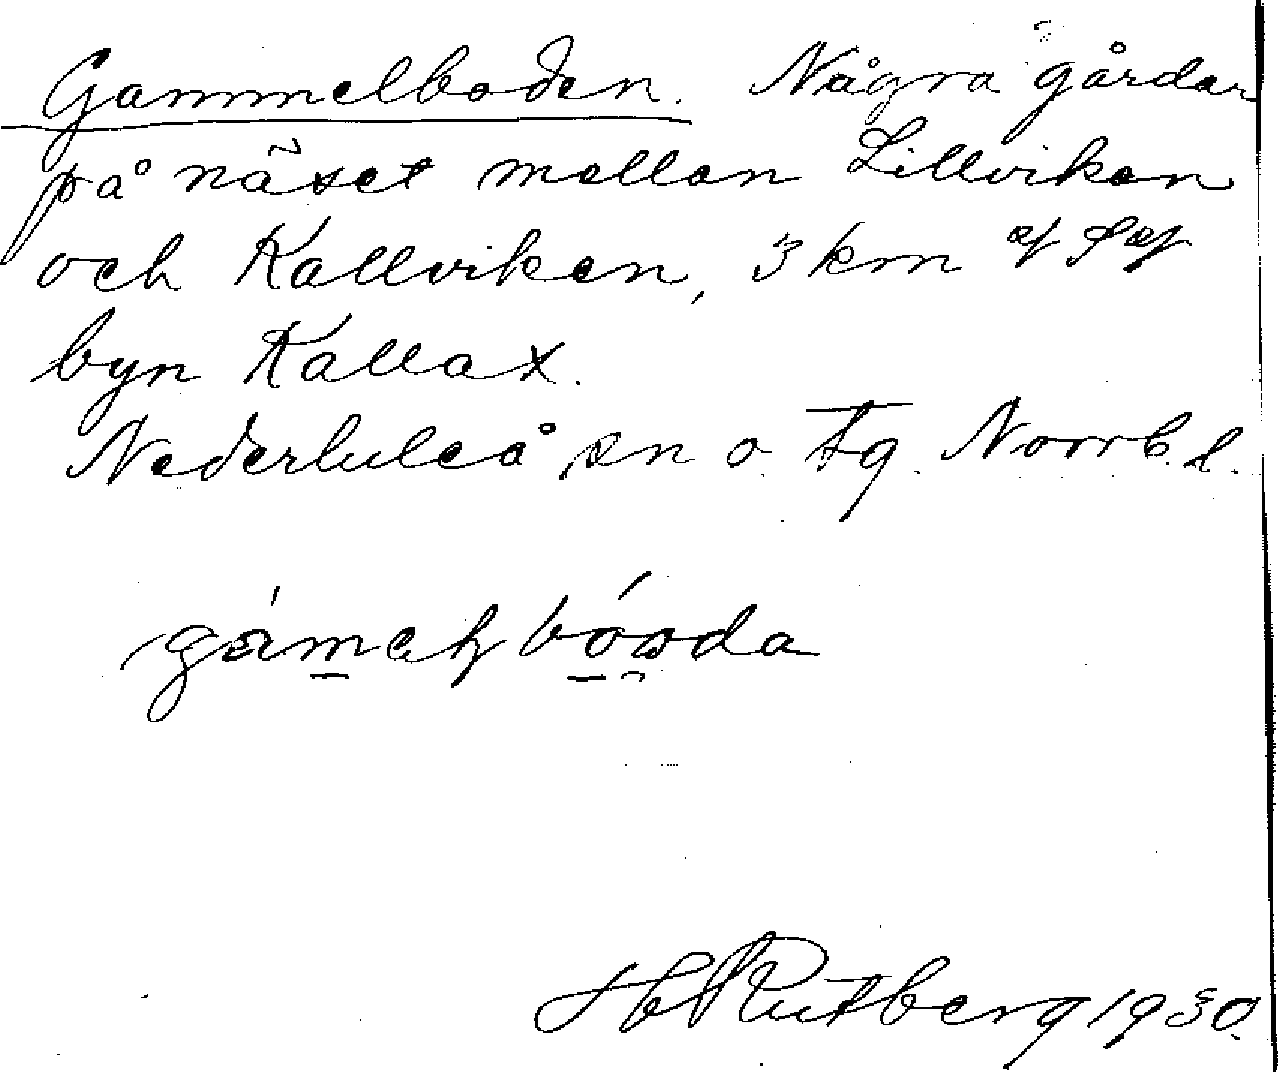 Gammelboden. Några gårdar
på näset mellan Lillviken
och Kallviken, 3 km
byn Kallax.
Nederluleå sn o. tg. Norrb. l.
Rutberg 1930.